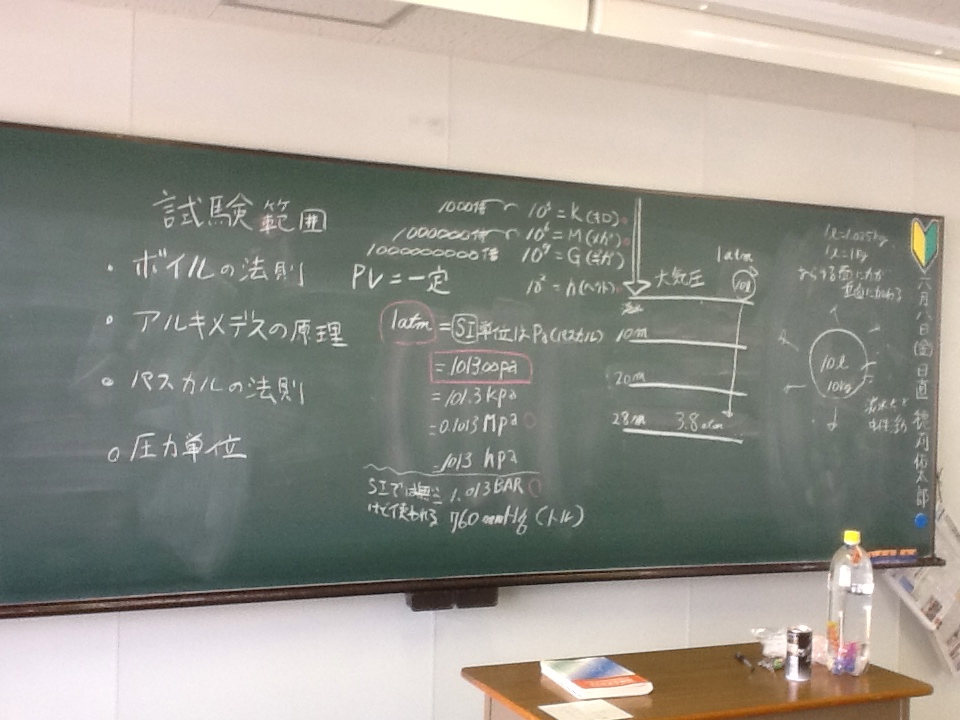 試験範囲
・ボイルの法則
・アルキメデスの原理
・パスカルの法則
○圧力単位
1000倍 10³=K(キロ)
1000000倍 10⁶=M(メガ)
1000000000倍 10⁹=G(ギガ)
PV=一定
10²=h(ヘクト)
1atm=SI単位はPa(パスカル)
=101300pa
=101.3kpa
=0.1013Mpa
=1013hpa
SIでは無い
けど使われる
1.013BAR
760mmHg(トル)
大気圧
1atm
10ℓ
10m
20m
28m 3.8atm
1ℓ=1.025kg
1ℓ=1kg
あらゆる面に力が
垂直に加わる
10ℓ
10kg
六月八日(金)日直